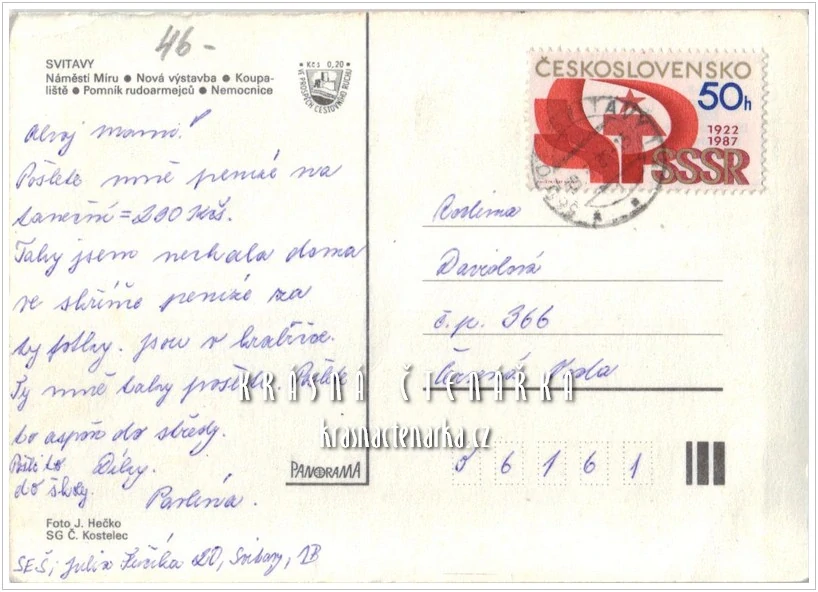 46-
SVITAVY
Náměstí Míru ● Nová výstavba ● Koupa-
liště ● Pomník rudoarmejců ● Nemocnice
Kčs 0,20
VE PROSPĚCH CESTOVNÍHO RUCHU
ČESKOSLOVENSKO
50h
1922
1987
SSSR
Ahoj mami!
Pošlete mně peníze na
taneční = 290 Kčs.
Taky jsem nechala doma
ve skříňce peníze za
ty fotky. jsou v krabičce.
Ty mně taky pošlete. Pošlete
to aspoň do středy.
Pošli to
do školy.
Díky.
Pavlína.
Rodina
Davidová
č.p. 366
Voda
KRÁSNÁ ČTENÁŘKA
krasnactenarka.cz
5 6 1 6 1
PANORAMA
Foto J. Hečko
SG Č. Kostelec
SEŠ, Julia Fučíka 20, Svitavy, 1B